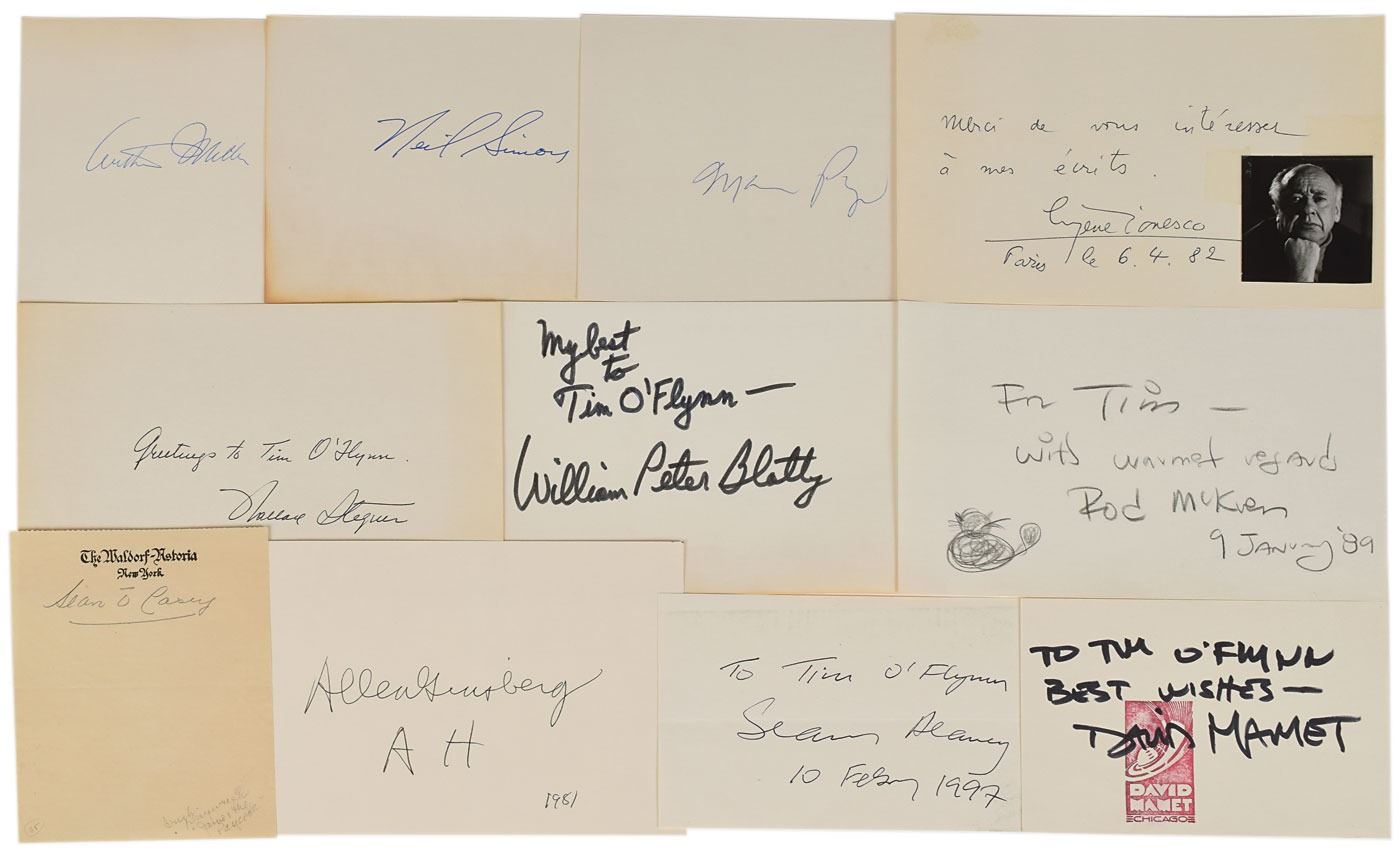 Arthur Miller
Neil Simon
Merci de vous intéresser
à mes écrits.
Eugène Ionesco
Paris le 6.4.82
Greetings to Tim O'Flynn.
Wallace Stegner
My best
to
Tim O'Flynn —
William Peter Blatty
For Tim —
with warmest regards
Rod McKuen
9 January '89
The Waldorf-Astoria
New York
Sean O Casey
35
Allen Ginsberg
A H
1981
To Tim O'Flynn
Seamus Heaney
10 Feby 1997
TO TIM O'FLYNN
BEST WISHES —
DAVID MAMET
DAVID
MAMET
CHICAGO